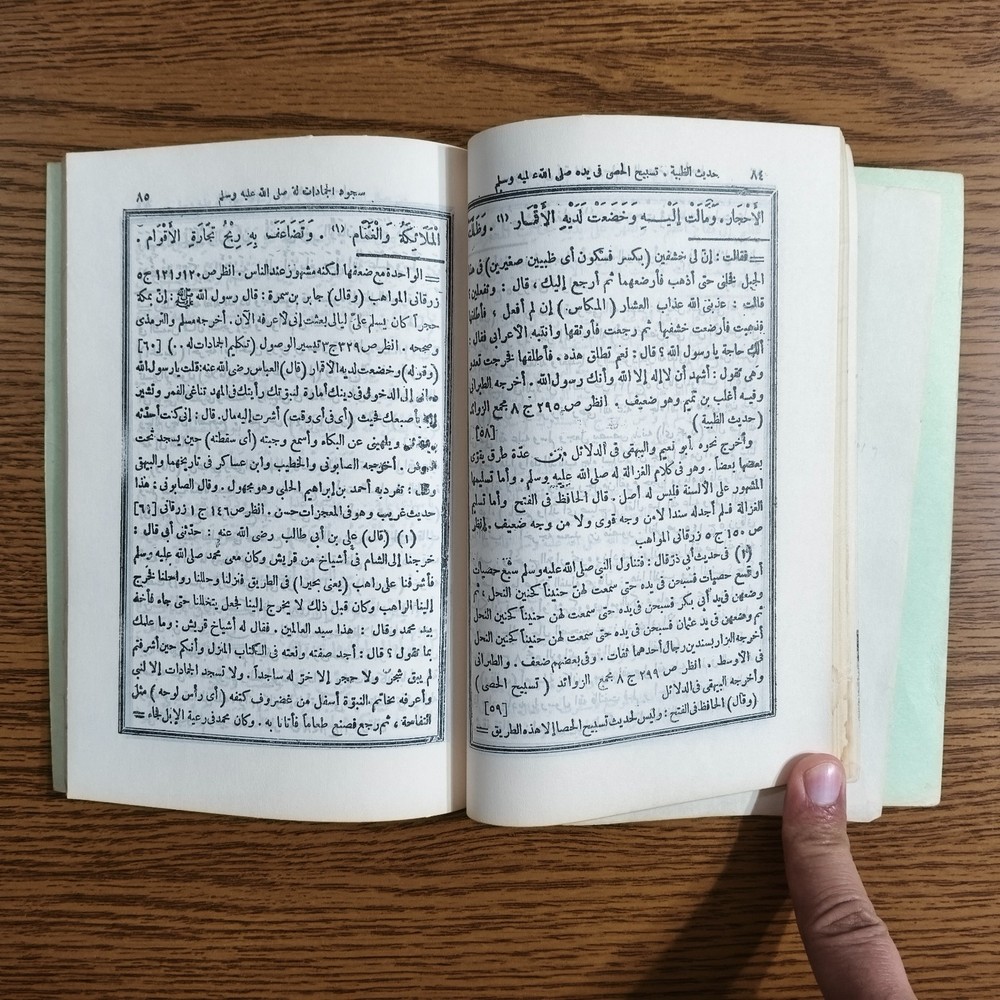 ٨٤
حديث الظبية . تسبيح الحصى فى يده صلى الله عليه وسلم
الأحْجَار . وَمَالَتْ إِلَيْـــهِ وَخَضَعَتْ لَدَيْهِ الأَقْمَـــار (١) .
= فقالت : إنّ لى خشفين (بكسر فسكون أى ظبيين صغيرين) فى
الجبل فخلنى حتى أذهب فأرضعهما ثم أرجع إليك ، قال : وتفعلين
قالت : عذبنى الله عذاب العشار (المكاس) إن لم أفعل ، فأطلقها
فذهبت فأرضعت خشفيها ثم رجعت فأوثقها وانتبه الأعرابى فقال :
ألك حاجة يا رسول الله ؟ قال : نعم تطلق هذه . فأطلقها فخرجت تعدو
وهى تقول : أشهد أن لا إله إلا الله وأنك رسول الله . أخرجه الطبرانى
وفيه أغلب بن تميم وهو ضعيف . انظر ص ٢٩٥ ج ٨ مجمع الزوائد
(حديث الظبية) [٥٨]
وأخرج نحوه أبو نعيم والبيهقى فى الدلائل من عدّة طرق يقوّى
بعضها بعضاً . وهو فى كلام الغزالة له صلى الله عليه وسلم . وأما تسليمها
المشهور على الألسنة فليس له أصل . قال الحافظ فى الفتح وأما تسليم
الغزالة فلم أجد له سندا لا من وجه قوى ولا من وجه ضعيف . انظر
ص ١٥٠ ج ٥ زرقانى المواهب
(٢) فى حديث أبى ذرّ قال : فتناول النبى صلى الله عليه وسلم سَبْعَ حصيات
أو تسع حصيات فسبحن فى يده حتى سمعت لهنّ حنيناً كحنين النحل ، ثم
وضعهن فى يد أبى بكر فسبحن فى يده حتى سمعت لهن حنيناً كحنين النحل
ثم وضعهن فى يد عثمان فسبحن فى يده حتى سمعت لهن حنيناً كحنين النحل
أخرجه البزار بسندين رجال أحدهما ثقات . وفى بعضهم ضعف . والطبرانى
فى الأوسط . انظر ص ٢٩٩ ج ٨ مجمع الزوائد (تسبيح الحصى)
وأخرجه البيهقى فى الدلائل [٥٩]
(وقال) الحافظ فى الفتح : وليس لحديث تسبيح الحصا إلا هذه الطريق =
سجود الجمادات له صلى الله عليه وسلم
٨٥
الْمَلَائِكَةُ وَالْغَمَام (١) . وَتَضَاعَفَ بِهِ رِبْحُ تِجَارَةِ الأَقْوَام .
= الواحدة مع ضعفها لكنه مشهور عند الناس . انظر ص ١٢٠ و ١٢١ ج ٥
زرقانى المواهب (وقال) جابر بن سمرة : قال رسول الله ﷺ : إنّ بمكة
حجراً كان يسلم علىّ ليالى بعثت إنى لأعرفه الآن . أخرجه مسلم والترمذى
وصححه . انظر ص ٣٢٩ ج ٣ تيسير الوصول (تكليم الجمادات له . .) [٦٠]
(وقوله) وخضعت لديه الأقمار (قال) العباس رضى الله عنه : قلت يا رسول الله
دعانى إلى الدخول فى دينك أمارة لنبوّتك رأيتك فى المهد تناغى القمر وتشير
إليه بأصبعك فحيث (أى فى أى وقت) أشرت إليه مال . قال : إنى كنت أحدّثه
ويحدثنى ويلهينى عن البكاء وأسمع وجبته (أى سقطته) حين يسجد تحت
العرش . أخرجه الصابونى والخطيب وابن عساكر فى تاريخهما والبيهقى
وقال : تفرد به أحمد بن إبراهيم الحلبى وهو مجهول . وقال الصابونى : هذا
حديث غريب وهو فى المعجزات حسن . انظر ص ١٤٦ ج ١ زرقانى [٦١]
(١) (قال) على بن أبى طالب رضى الله عنه : حدّثنى أبى قال :
خرجنا إلى الشام فى أشياخ من قريش وكان معى محمد صلى الله عليه وسلم
فأشرفنا على راهب (يعنى بحيرا) فى الطريق فنزلنا وحللنا رواحلنا فخرج
إلينا الراهب وكان قبل ذلك لا يخرج إلينا فجعل يتخللنا حتى جاء فأخذ
بيد محمد وقال : هذا سيد العالمين . فقال له أشياخ قريش : وما علمك
بما تقول ؟ قال : أجد صفته ونعته فى الكتاب المنزل وأنكم حين أشرفتم
لم يبق شجر ولا حجر إلا خرّ له ساجداً . ولا تسجد الجمادات إلا لنبى
وأعرفه بخاتم النبوّة أسفل من غضروف كتفه (أى رأس لوحه) مثل
التفاحة ، ثم رجع فصنع طعاماً فأتانا به . وكان محمد فى رعية الإبل فجاء =